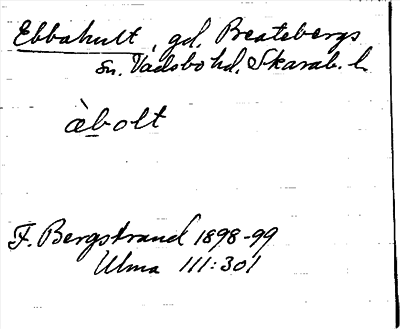 Ebbahult, gd, Breatebergs
sn. Vadsbo hd. Skarab. l.
àbolt
F. Bergstrand 1898-99
Ulma 111:301